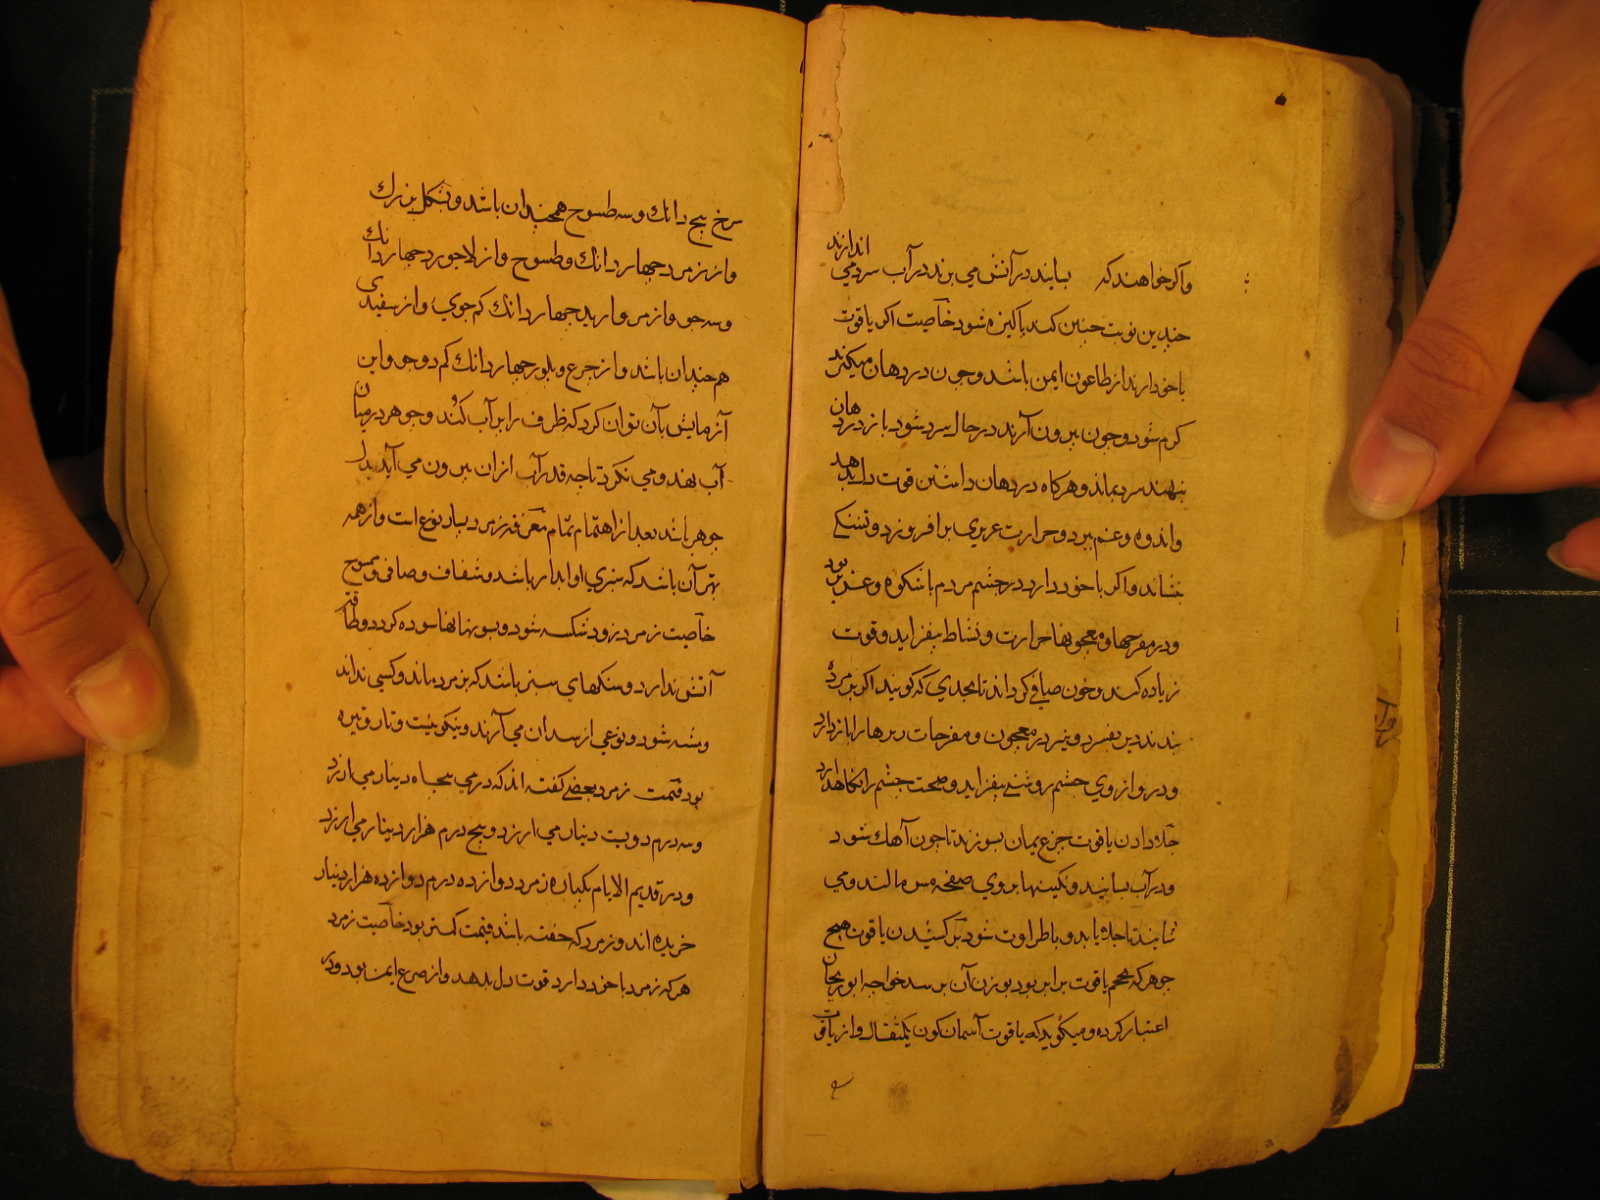 واکر خواهند که بسایند در آتش می برند در آب سرد می اندازند
جندین نوبت جنین کنند پاکیزه شود خاصیت اکر یاقوت
باخود دارند از طاعون ایمن باشند و جون در دهان میکیرند
کرم شود و جون بیرون آرند در حال سرد شود باز در دهان
نهند سرد بماند و هرکاه در دهان داشتن قوت دل بدهد
واندوه و غم ببرد و حرارت غریزی برافروزد و تشنکی
بنشاند واکر باخود دارد در جشم مردم باشکوه و عزیز بود
ودر مفرحها و معجونها حرارت و نشاط بیفزاید و قوت
زیاده کند و خون صافی کرداند تا بحدی که کویند اکر بر مرده
بندند دیر بفسرد و نیز در معجون و مفرحات زهرها را باز دارد
ودر و از روی جشم روشنی بیفزاید و صحت جشم را نکاهدارد
جلا دادن یاقوت جزع یمان بسوزند تا جون آهك شود
ودر آب بسایند و نکینها بروی صفحه مس مالند و می
سایند تا جلا یابد و باطراوت شود کشیدن یاقوت هیج
جوهر که بحجم یاقوت برابر بود بوزن آن برسد خواجه ابو ریحان
اعتبار کرده و میکوید که یاقوت آسمان کون یکمثقال و از یاقوت
سرخ بنج دانك و سه طسوج همجندان باشد و بشکل بزرك
واز زمرد جهار دانك و طسوج و از لاجورد جهار دانك
وسه جو و از مروارید جهار دانك کم جوی و از سفیدی
هم جندان باشد و از جزع و بلور جهار دانك کم دو جو و این
آزمایش بآن توان کرد که ظرف را پر آب کنند و جوهر در میان
آب نهند و می نکرد تا جه قدر آب از ان بیرون می آید بدل
جوهر باشد بعد از اهتمام تمام معرفة زمرد بسیار نوع است و از همه
بهتر آن باشد که سبزی او ابدار باشد و شفاف و صافی و مموج
خاصیت زمرد زود شکسته شود و بسوهانها سوده کردد و طاقة
آتش ندارد و سنکهای سبز باشد که بزمرد ماند و کسی نداند
وشبه شود و نوعی از سدان می آرند و نیکو نیست و تار و تیره
بود قیمت زمرد بعضی کفته اند که درمی بنجاه دینار می ارزد
وسه درم دویست دینار می ارزد و بنج درم هزار دینار می ارزد
ودر قدیم الایام یکباره زمرد دوازده درم دوازده هزار دینار
خریده اند و زمرد که خفته باشد قیمت کمتر بود خاصیت زمرد
هرکه زمرد با خود دارد قوت دل بدهد و از صرع ایمن بود و در